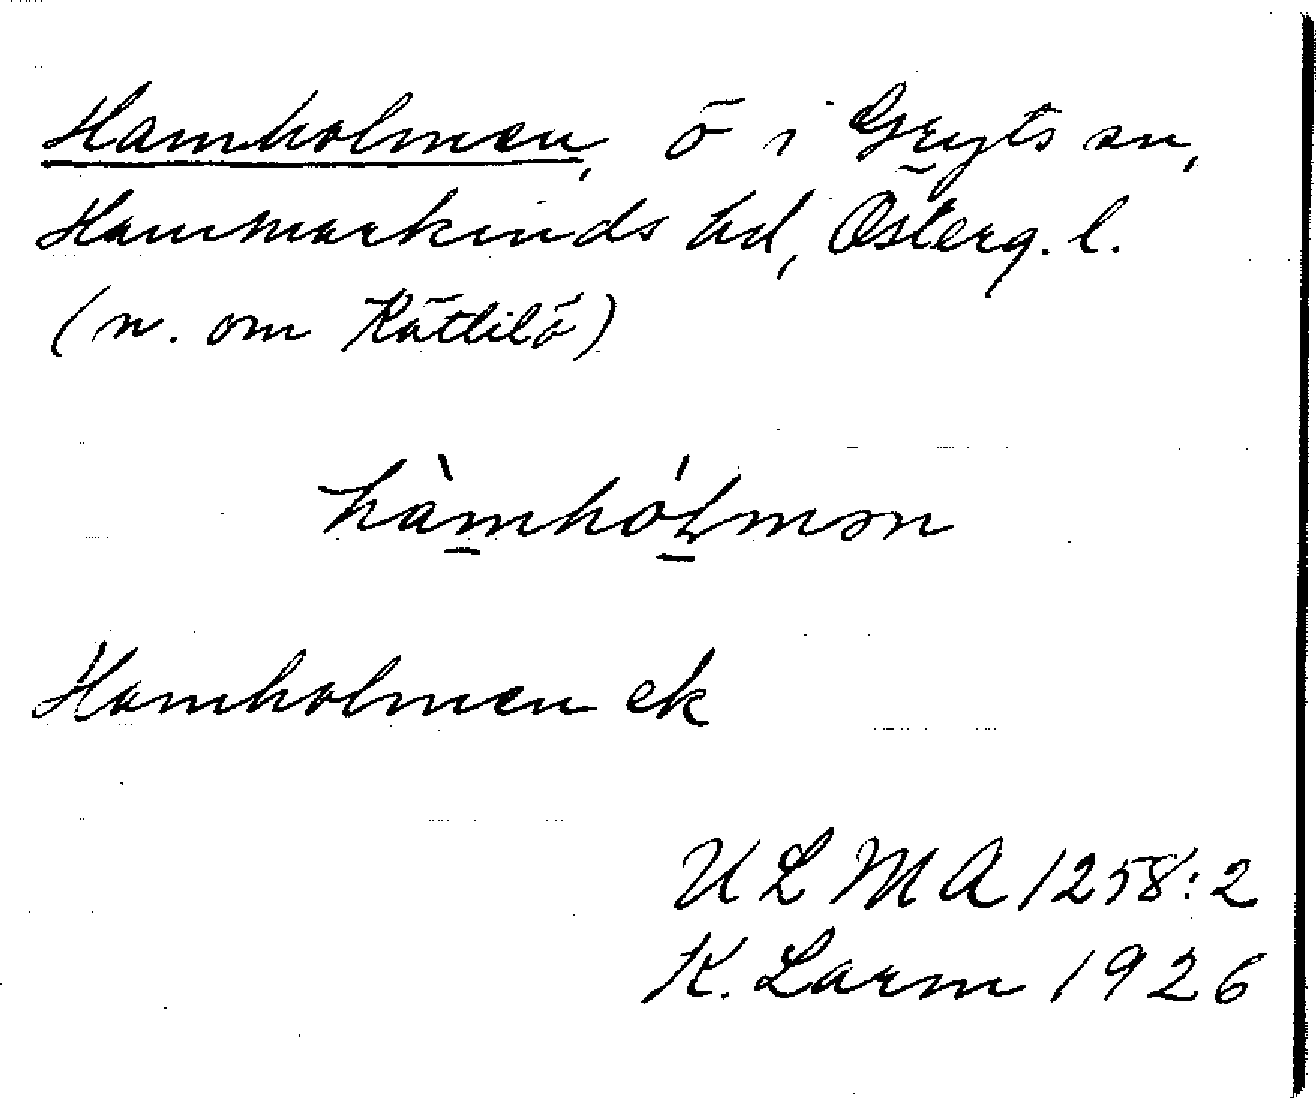 Hamholmen, ö i Gryts sn,
Hammarkinds hd, Österg. l.
(n. om Kättilö)
hàmhólmən
Hamholmen ek
ULMA 1258:2
K. Larm 1926